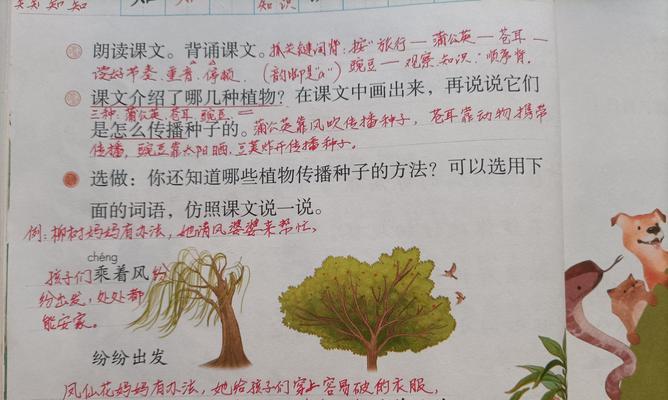 知 识
朗读课文。背诵课文。抓关键词背：按“旅行—蒲公英—苍耳—
读好节奏、重音、停顿。（韵脚是“a”） 豌豆—观察、知识”顺序背。
课文介绍了哪几种植物？在课文中画出来，再说说它们
三种：蒲公英、苍耳、豌豆。
是怎么传播种子的。蒲公英靠风吹传播种子，苍耳靠动物携带
传播，豌豆靠太阳晒、豆荚炸开传播种子。
选做：你还知道哪些植物传播种子的方法？可以选用下
面的词语，仿照课文说一说。
例：柳树妈妈有办法，她请风婆婆来帮忙，
chéng
孩子们 乘着风 纷
纷出发，处处都
能安家。
纷纷出发
凤仙花妈妈有办法，她给孩子们穿上容易破的衣服，